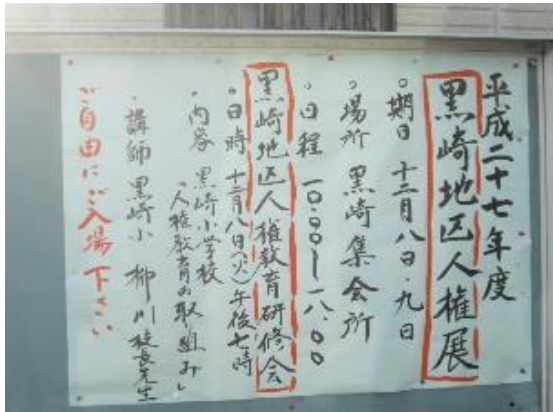 平成二十七年度
黒崎地区人権展
。期日 十二月八日・九日
。場所 黒崎集会所
。日程 一〇:〇〇〜一八:〇〇
黒崎地区人権教育研修会
。日時 十二月八日(火)午後七時
・内容 黒崎小学校
「人権教育の取り組み」
・講師 黒崎小 柳川校長先生
ご自由にご入場下さい